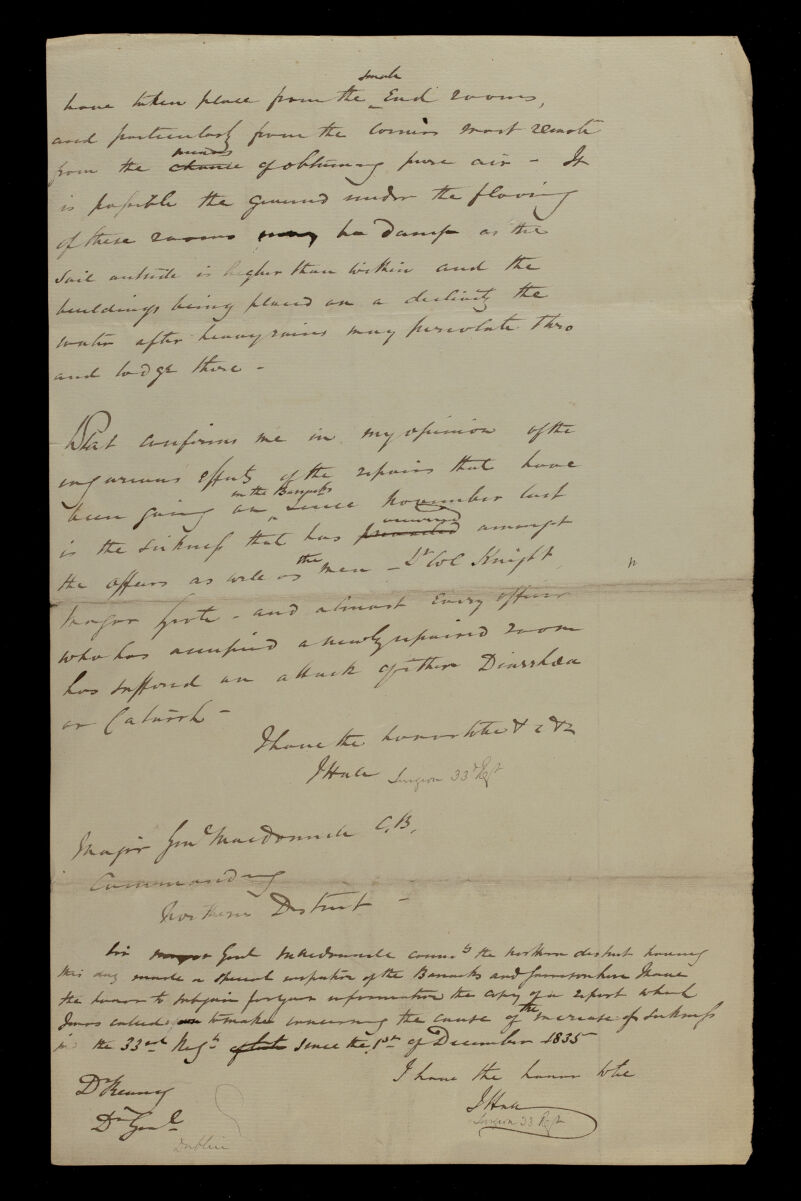 small
have taken place from the End rooms,
and particularly from the corners most remote
means
from the chance of obtaining pure air - It
is possible the ground under the flooring
of these rooms may be damp as the
soil outside is higher than within and the
buildings being placed on a declivity the
water after heavy rains may percolate thro
and lodge there -
What confirms me in my opinion of the
injurious effects of the repairs that have
in the Barracks
been going on since November last
occurred
is the sickness that has prevailed amongst
the
the officers as well as men - Lt Col Knight
Major - and almost every officer
who has occupied a newly repaired room
has suffered an attack of either Diarrhœa
or Catarrh -
I have the honor to be &c &c
J Hall Surgeon 33d Regt
Major Genl Macdonnell C.B.
Commanding
Northern District -
Sir Major Genl Macdonnell the northern district having
this day made a special inspection of the Barracks and Garrison here I have
the honor to subjoin for your information the copy of a report which
the
I was called on to make concerning the cause of increase of sickness
in the 33rd Regt since the 1st of December 1835
I have the honor to be
Dr Renny
J Hall
Surgeon 33 Regt
Dr Genl
Dublin